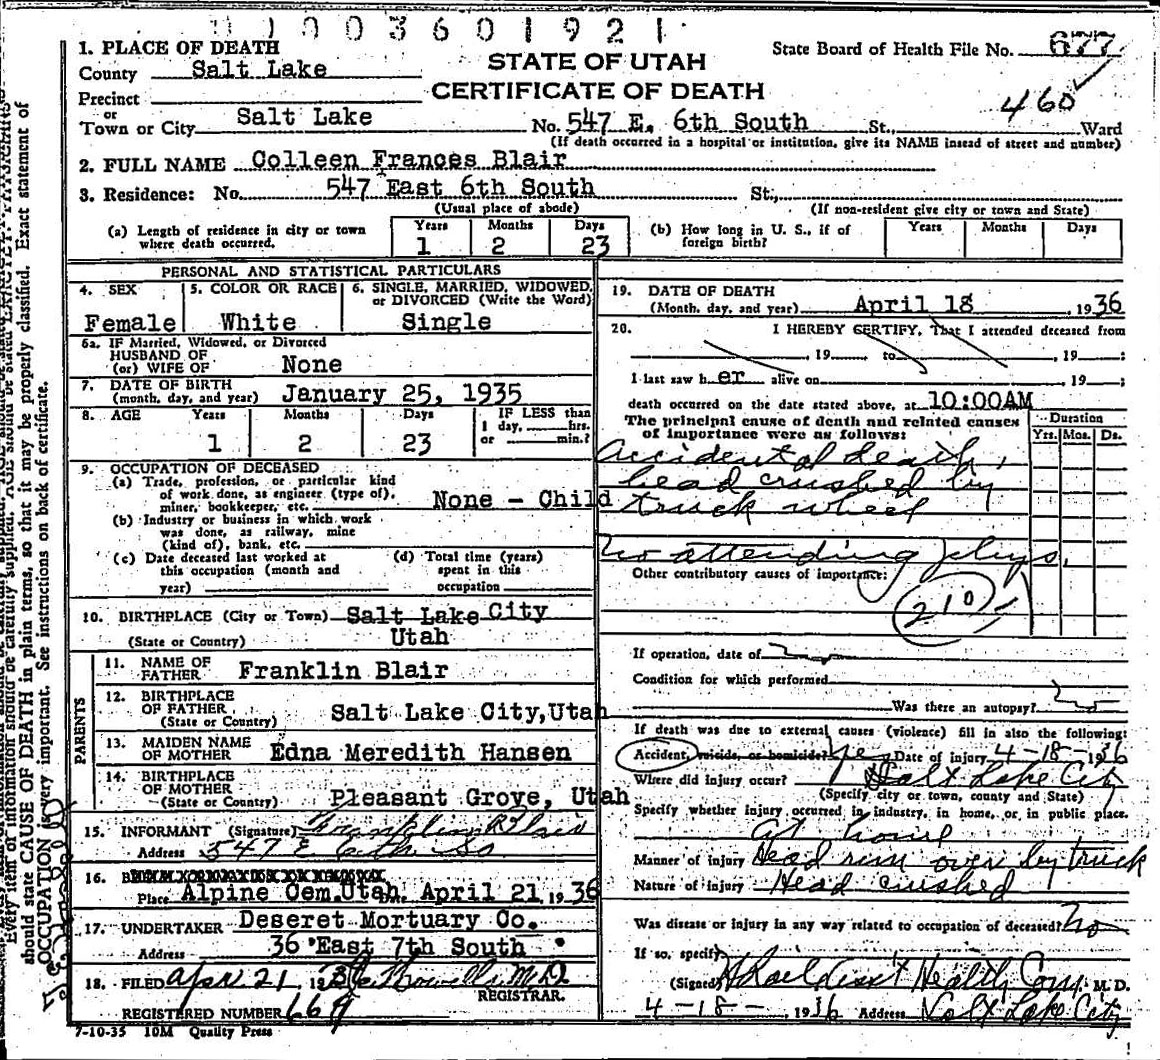 1003601921
1. PLACE OF DEATH
State Board of Health File No. 677
County Salt Lake
STATE OF UTAH
Precinct
CERTIFICATE OF DEATH
or
460
Town or City Salt Lake No. 547 E. 6th South St., Ward
(If death occurred in a hospital or institution, give its NAME instead of street and number)
2. FULL NAME Colleen Frances Blair
3. Residence: No. 547 East 6th South St.,
(Usual place of abode) (If non-resident give city or town and State)
(a) Length of residence in city or town where death occurred. Years 1 Months 2 Days 23
(b) How long in U. S., if of foreign birth? Years Months Days
PERSONAL AND STATISTICAL PARTICULARS
4. SEX 5. COLOR OR RACE 6. SINGLE, MARRIED, WIDOWED,
or DIVORCED (Write the Word)
Female White Single
6a. IF Married, Widowed, or Divorced
HUSBAND OF
(or) WIFE OF None
7. DATE OF BIRTH
(month, day, and year) January 25, 1935
8. AGE Years Months Days IF LESS than
1 day, hrs.
or min.?
1 2 23
9. OCCUPATION OF DECEASED
(a) Trade, profession, or particular kind
of work done, as engineer (type of),
miner, bookkeeper, etc. None - Child
(b) Industry or business in which work
was done, as railway, mine
(kind of), bank, etc.
(c) Date deceased last worked at
this occupation (month and
year)
(d) Total time (years)
spent in this
occupation
10. BIRTHPLACE (City or Town) Salt Lake City
(State or Country) Utah
PARENTS
11. NAME OF
FATHER Franklin Blair
12. BIRTHPLACE
OF FATHER
(State or Country) Salt Lake City, Utah
13. MAIDEN NAME
OF MOTHER Edna Meredith Hansen
14. BIRTHPLACE
OF MOTHER
(State or Country) Pleasant Grove, Utah
15. INFORMANT (Signature) Franklin Blair
Address 547 E 6th So
16.
Place Alpine Cem. Utah April 21, 1936
17. UNDERTAKER Deseret Mortuary Co.
Address 36 East 7th South
18. FILED Apr 21, 1936 M.D.
REGISTRAR.
REGISTERED NUMBER 669
7-10-35 10M Quality Press
19. DATE OF DEATH
(Month, day, and year) April 18, 1936
20. I HEREBY CERTIFY, That I attended deceased from
, 19 to , 19 ;
I last saw her alive on , 19 ;
death occurred on the date stated above, at 10:00AM
The principal cause of death and related causes
of importance were as follows:
Duration
Yrs. Mos. Ds.
Accidental death,
head crushed by
truck wheel
No attending phys.
Other contributory causes of importance:
210
If operation, date of
Condition for which performed
Was there an autopsy?
If death was due to external causes (violence) fill in also the following:
Accident, suicide, or homicide? yes Date of injury 4-18-1936
Where did injury occur? Salt Lake City
(Specify city or town, county and State)
Specify whether injury occurred in industry, in home, or in public place.
At home
Manner of injury Head run over by truck
Nature of injury Head crushed
Was disease or injury in any way related to occupation of deceased? No
If so, specify
(Signed) Health Com. M. D.
4-18-, 1936 Address Salt Lake City
should state CAUSE OF DEATH in plain terms, so that it may be properly classified. Exact statement of
OCCUPATION is very important. See instructions on back of certificate.